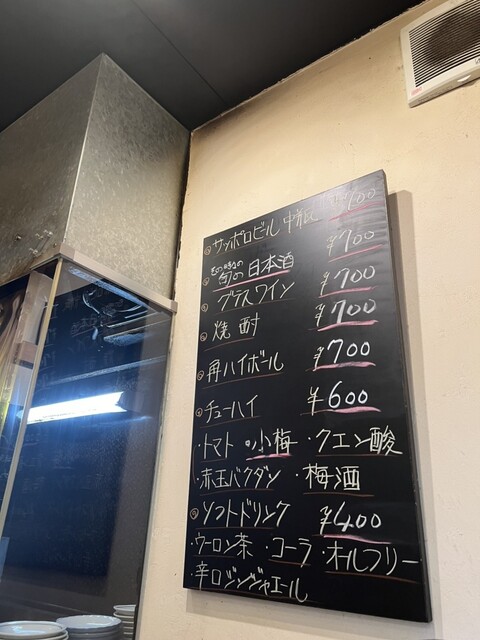 サッポロビール 中瓶 ¥700
その時々の
旬の日本酒 ¥700
グラスワイン ¥700
焼酎 ¥700
再ハイボール ¥700
チューハイ ¥600
・トマト ・小梅 ・クエン酸
・赤玉バクダン ・梅酒
ソフトドリンク ¥400
・ウーロン茶 ・コーラ ・オールフリー
・辛口ジンジャエール